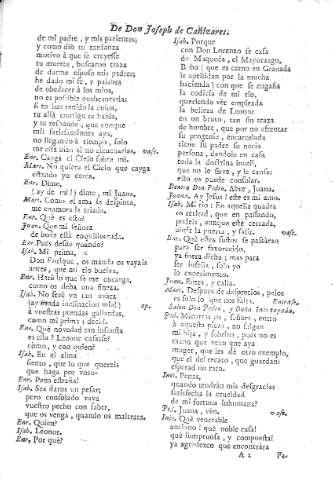 De Don Joseph de Cañizares.
de mi padre, y mis parientes;
y como diò tu tardanza
motivo à que se creyesse
tu muerte, buscaron traza
de darme esposo mis padres;
he dado mi fè, y palabra
de obedecer à los mios,
no es possible
tu allà contigo te
y te responde, que aunque
mi
no llegando à tiempo, solo
me està bien el no
Enr. Cayga el Cielo sobre mi.
Mart. No quiera el Cielo que cayga
estando yo cerca.
Enr. Dime,
(ay de mi!) dime, mi Juana.
Mart. Como el ama le despinta,
me enamora la criada.
Enr. Què es esto?
Juan. Que mi señora
de boda està enquillotrada.
Enr. Pues desde quando?
Isab. Mi prima,
Don Enrique, os manda os vayais
antes, que mi tio buelva.
Enr. Harè lo que me encarga,
como os deba una fineza.
Isab. No serè yo tan avara
à vuestras prendas gallardas,
como mi prima: decid.
Enr. Què novedad tan infausta
es esta? Leonor casarse?
còmo, y con quien?
Isab. En el alma
siento, que lo que quereis
que haga por vos
Enr. Pena estraña!
Isab. Sea daros un pesar;
pero consolado vaya
vuestro pecho con saber,
que os venga, quando os maltrata.
Enr. Quien?
Isab. Leonor.
Enr. Por què?
Isab. Porque
con Don Lorenzo se casa
de Maqueda, el Mayorazgo,
(que es como en Granada
le apellidan por la mucha
hacienda) con que se engaña
la codicia de mi tio,
queriendo vèr empleada
la belleza de Leonor
en un bruto, tan sin traza
de hombre, que por no afrentar
su progenie, encarcelada
tiene su padre se necia
persona, dandole en casa
toda la doctrina inutil,
que no le sirve, y le cansa:
esto os puede consolar.
Dentro Don Pedro. Abre, Juana.
Juana. Ay Jesus! este es mi amo.
Isab. Mi tio: En aquella quadra
os retirad, que en passando,
podeis, aunque estè cerrada,
abrir la puerta, y salir. vase.
Enr. Què estos sustos se passàran
para ser favorecido,
ya fuera dicha; mas para
ser infeliz, solo yo
lo experimento.
Juan. Entra, y calla.
Mart. Despues de desprecios, palos
es solo lo que nos falta.
Salen Don Pedro, y Doña Inès tapada.
Ped. Mientras yo, señora, entro
à aquesta pieza, no salgan
mi hija, y sobrina, pues no es
razon que vean que aya
muger, que les dè otro exemplo,
que el del recato, que guardan:
esperad un rato.
Inès. Penas,
quando tendràn mis desgracias
satisfecha la crueldad
de mi fortuna inhumana?
Ped. Juana, vèn. vase.
Inès. Què venerable
anciano! què noble casa!
què sumptuosa, y compuesta!
ya agradezco que encontràra
A 2